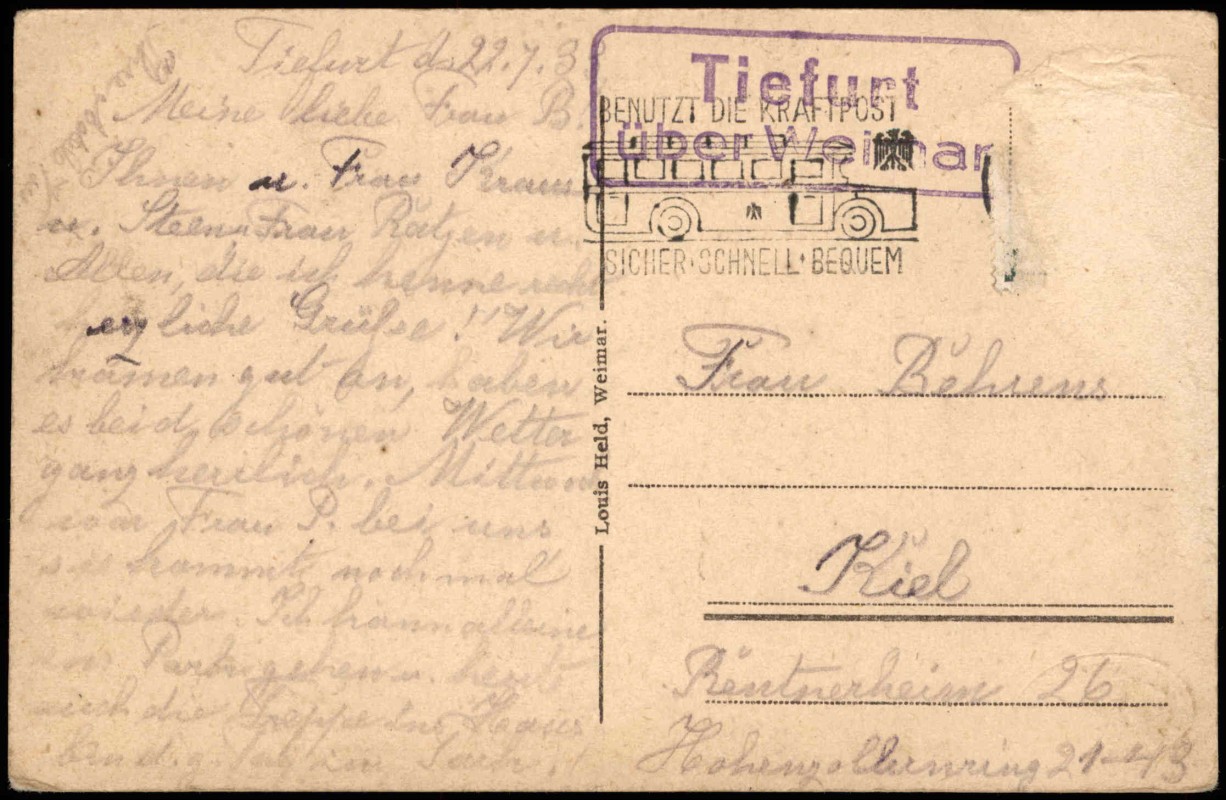 Tiefurt d. 22.7.3
Meine liebe Frau B.!
Ihnen u. Frau Kraus
u. Steen, Frau Rätjen u.
Allen, die ich kenne recht
herzliche Grüße! Wir
kamen gut an, haben
es beid. schönen Wetter
ganz herrlich. Mittwo
war Frau P. bei uns
sie kommt nochmal
wieder. Ich kann alleine
im Park gehen u. heute
auch die Treppe im Haus
Tiefurt
über Weimar
BENUTZT DIE KRAFTPOST
SICHER·SCHNELL·BEQUEM
Louis Held, Weimar.
Frau Behrens
Kiel
Rentnerheim 26
Hohenzollernring 21-43